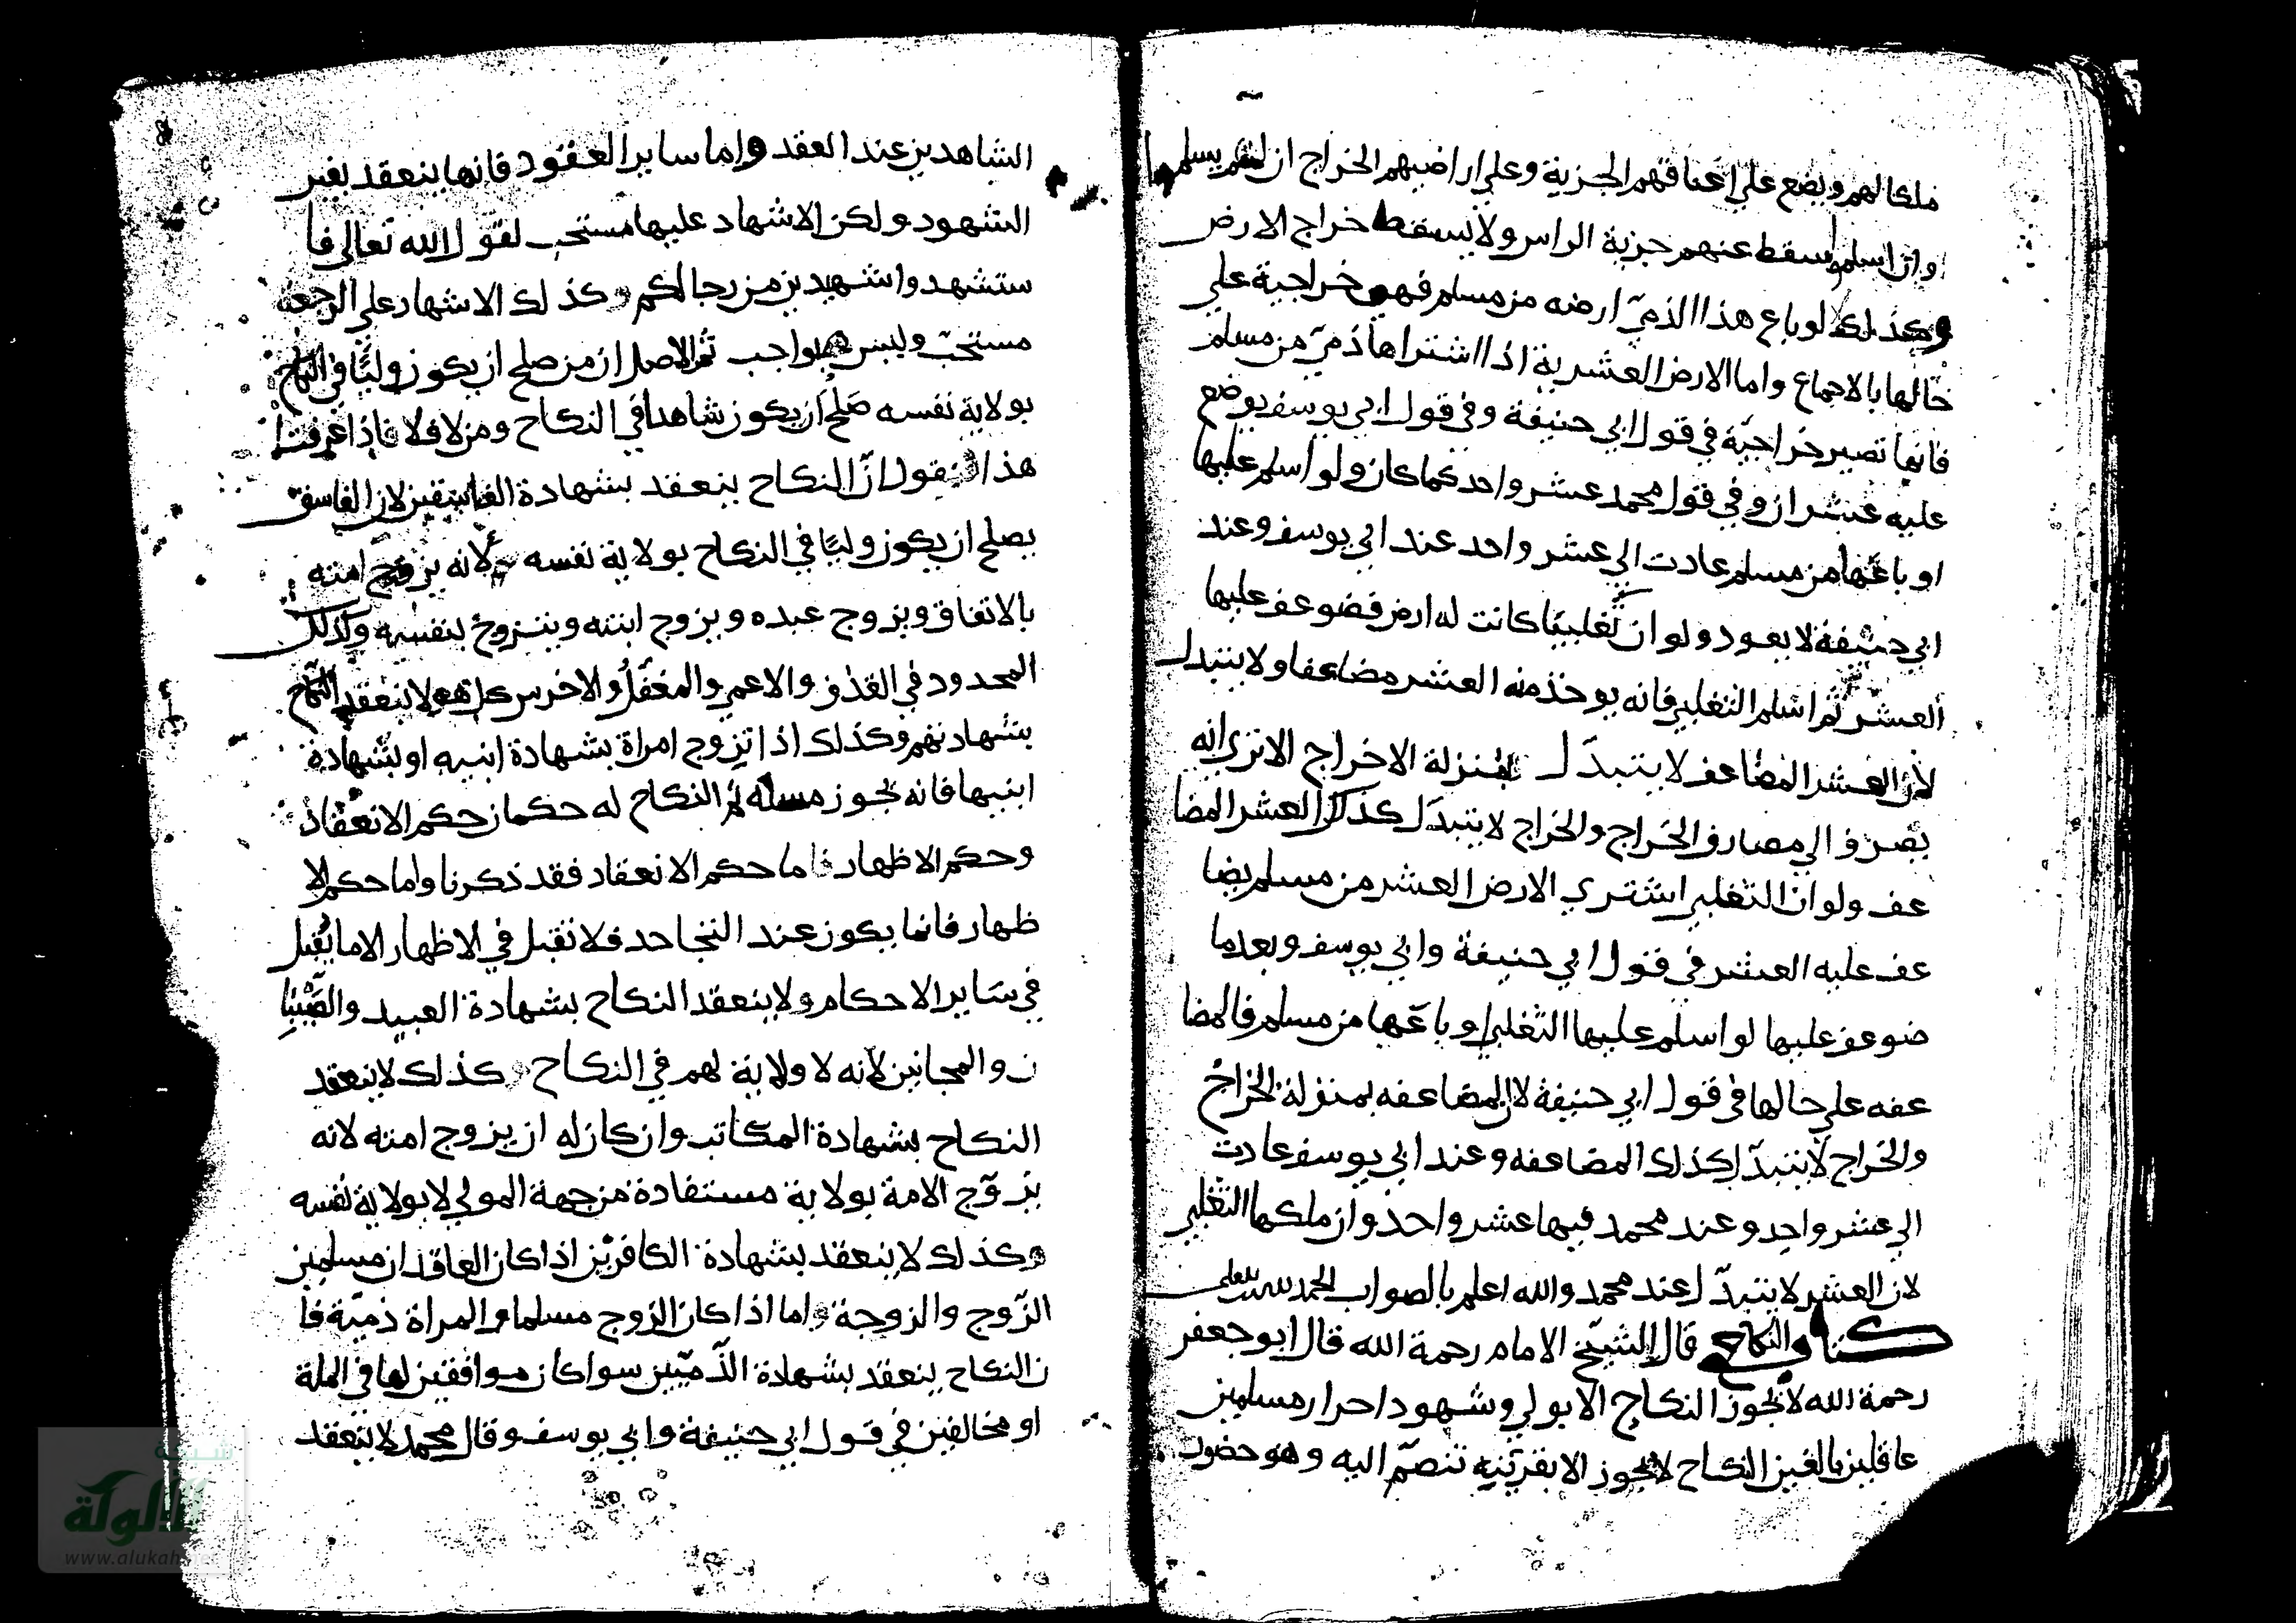 ملكا لهم ويضع علي اعناقهم الجزية وعلي اراضيهم الخراج ان لم يسلموا
وان اسلموا سقط عنهم جزية الراس ولا يسقط خراج الارض
وكذلك لو باع هذا الذمي ارضه من مسلم فهي خراجية علي
حالها بالاجماع واما الارض العشرية اذا اشتراها ذمي من مسلم
فانها تصير خراجية في قول ابي حنيفة وفي قول ابي يوسف يوضع
عليه عشران وفي قول محمد عشر واحد كما كان ولو اسلم عليها
او باعها من مسلم عادت الي عشر واحد عند ابي يوسف وعند
ابي حنيفة لا يعود ولو ان تغلبيا كانت له ارض فضوعف عليها
العشر ثم اسلم التغلبي فانه يوخذ منه العشر مضاعفا ولا يتبدل
لان العشر المضاعف لا يتبدل بمنزلة الاخراج الا تري انه
يصرف الي مصارف الخراج والخراج لا يتبدل كذلك العشر المضا
عف ولو ان التغلبي اشتري الارض العشر من مسلم يضا
عف عليه العشر في قول ابي حنيفة وابي يوسف وبعدما
ضوعف عليها لو اسلم عليها التغلبي او باعها من مسلم فالمضا
عفه علي حالها في قول ابي حنيفة لان المضاعفه بمنزلة الخراج
والخراج لا يتبدل كذلك المضاعفه وعند ابي يوسف عادت
الي عشر واحد وعند محمد فيها عشر واحد وان ملكها التغلبي
لان العشر لا يتبدل عند محمد والله اعلم بالصواب الحمد لله
كتاب النكاح قال الشيخ الامام رحمة الله قال ابو جعفر
رحمة الله لا يجوز النكاح الا بولي وشهود احرار مسلمين
عاقلين بالغين النكاح لا يجوز الا بقرينه تنضم اليه وهو حضور
الشاهدين عند العقد واما ساير العقود فانها ينعقد بغير
الشهود ولكن الاشهاد عليها مستحب لقول الله تعالي فا
ستشهدوا شهيدين من رجالكم وكذلك الاشهاد علي الرجعة
مستحب وليس بواجب ثم الاصل ان من صلح ان يكون وليا في النكاح
بولاية نفسه صلح ان يكون شاهدا في النكاح ومن لا فلا فاذا عرفت
هذا نقول ان النكاح ينعقد بشهادة الفاسقين لان الفاسق
يصلح ان يكون وليا في النكاح بولاية نفسه لانه يزوج امته
بالاتفاق ويزوج عبده ويزوج ابنته ويتزوج لنفسه وكذلك
المحدود في القذف والاعمي والمغفل والاخرس كل هولا ينعقد النكاح
بشهادتهم وكذلك اذا تزوج امراة بشهادة ابنيه او بشهادة
ابنيها فانه يجوز مسله ثم النكاح له حكمان حكم الانعقاد
وحكم الاظهار فاما حكم الانعقاد فقد ذكرنا واما حكم الا
ظهار فانما يكون عند التجاحد فلا تقبل في الاظهار الا ما يقبل
في ساير الاحكام ولا ينعقد النكاح بشهادة العبيد والصبيا
ن والمجانين لانه لا ولاية لهم في النكاح وكذلك لا ينعقد
النكاح بشهادة المكاتب وان كان له ان يزوج امته لانه
يزوج الامة بولاية مستفادة من جهة المولي لا بولاية نفسه
وكذلك لا ينعقد بشهادة الكافرين اذا كان العاقدان مسلمين
الزوج والزوجة واما اذا كان الزوج مسلما والمراة ذمية فا
ن النكاح ينعقد بشهادة الذميين سوا كان موافقين لها في الملة
او مخالفين في قول ابي حنيفة وابي يوسف وقال محمد لا ينعقد
شبكة
الألوكة